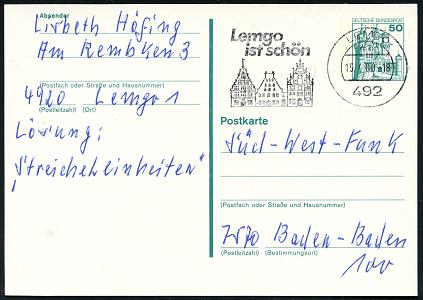 Absender
Lisbeth Höfing
Am Rembken 3
(Postfach oder Straße und Hausnummer)
4920 Lemgo 1
(Postleitzahl) (Ort)
Lösung:
„Streicheleinheiten"
Lemgo
ist schön
DEUTSCHE BUNDESPOST
50
LEMGO
492
Postkarte
Süd-West-Funk
(Postfach oder Straße und Hausnummer)
7570 Baden-Baden
(Postleitzahl) (Bestimmungsort)
100